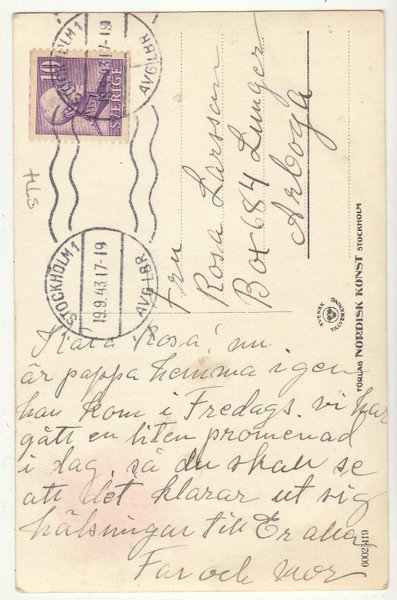 10
SVERIGE
STOCKHOLM 1
19.9.43 17-19
AVG LBR
STOCKHOLM 1
19.9.43 17-19
AVG LBR
Fru
Rosa Larsson
Box 684 Lunger
Arboga
Kära Rosa! nu
är pappa hemma igen
han kom i Fredags. vi har
gått en liten promenad
i dag, så du skall se
att det klarar ut sig
hälsningar till Er alla
Far och Mor
SVENSK
TILLVERKNING
FÖRLAG NORDISK KONST STOCKHOLM
6002/419